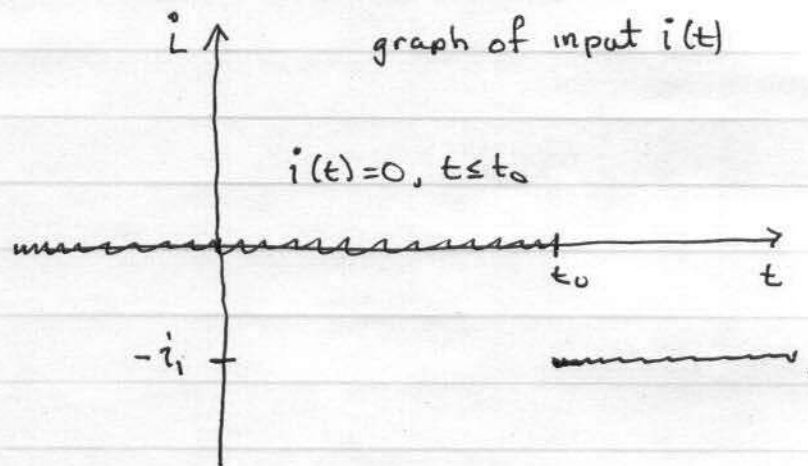 i graph of input i(t)
i(t)=0, t≤t₀
t₀ t
-i₁